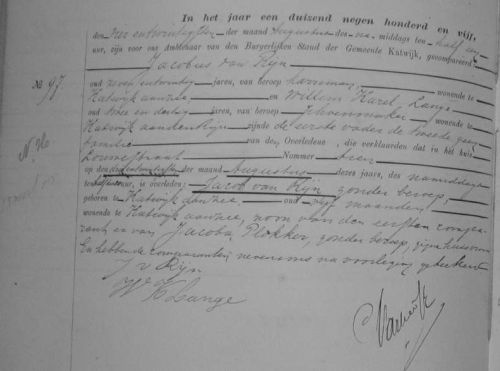 In het jaar een duizend negen honderd en vijf,
den vier entwintigsten der maand Augustus des middags ten half een
ure, zijn voor ons ambtenaar van den Burgerlijken Stand der Gemeente Katwijk, gecompareerd
Jacobus van Rijn
No 97. oud zeven entwintig jaren, van beroep wonende te
Katwijk aan zee en Willem Karel Lange
oud twee en dertig jaren, van beroep schoenmaker wonende te
Katwijk aan den Rijn zijnde de eerste vader de tweede geen
familie van den Overledene, die verklaarden dat in het huis
Louwestraat Nommer tien
op den der maand Augustus dezes jaars, des namiddags
ure, is overleden: Jacob van Rijn zonder beroep,
geboren te Katwijk aan zee, oud vijf maanden,
wonende te Katwijk aan zee, zoon van den eersten compa-
rant en van Jacoba Plokker, zonder beroep, zijn huisvrouw
En hebben de comparanten nevens ons na voorlezing geteekend
J v Rijn
W K Lange